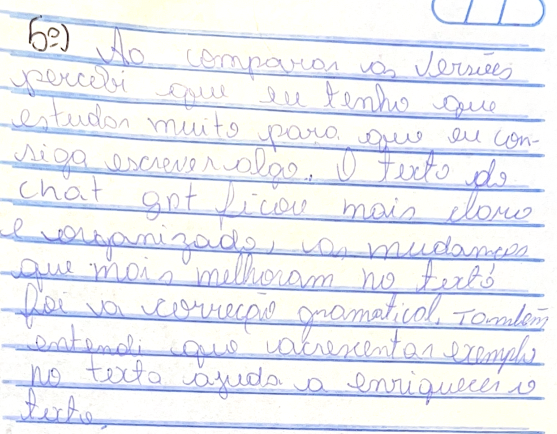 5º) Ao comparar as versões
percebi que eu tenho que
estudar muito para que eu con-
siga escrever algo. O texto do
chat gpt ficou mais claro
e organizado, as mudanças
que mais melhoram no texto
foi a correção gramatical. Também
entendi que acrescentar exemplo
no texto ajuda a enriquecer o
texto.